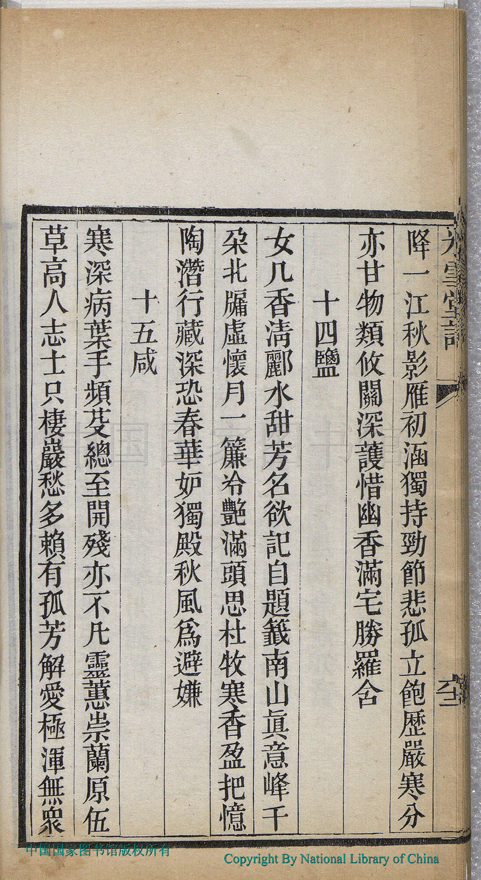 降一江秋影雁初涵獨持勁節悲孤立飽歷嚴寒分
亦甘物類攸關深護惜幽香滿宅勝羅含
十四鹽
女几香淸酈水甜芳名欲記自題籤南山眞意峰千
朶北牖虛懷月一簾冷艷滿頭思杜牧寒香盈把憶
陶潛行藏深恐春華妒獨殿秋風爲避嫌
十五咸
寒深病葉手頻芟總至開殘亦不凡靈蕙崇蘭原伍
草高人志士只棲巖愁多賴有孤芳解愛極渾無衆
中国国家图书馆版权所有
Copyright By National Library of China